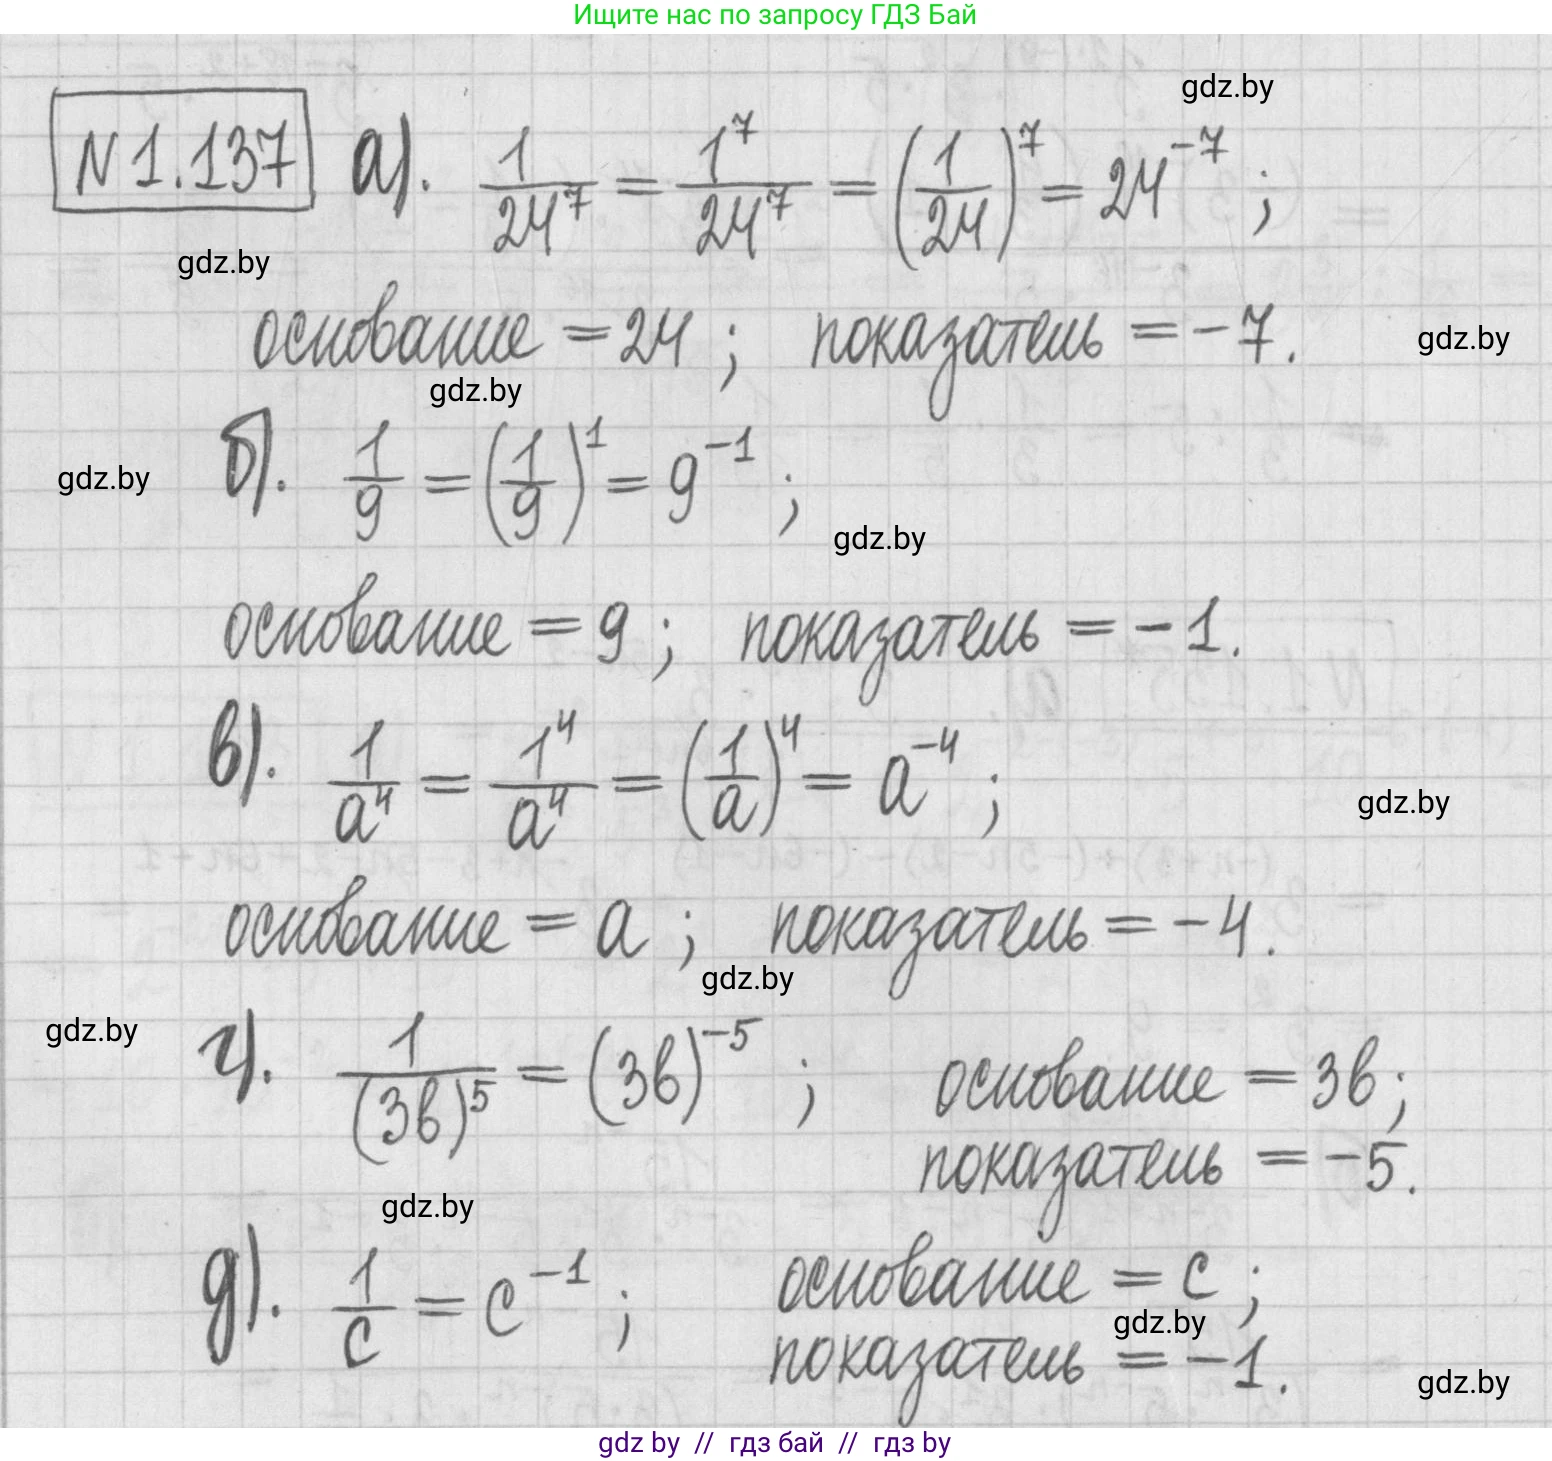 Ищите нас по запросу ГДЗ Бай
gdz.by
N 1.137 а). 1/24⁷ = 1⁷/24⁷ = (1/24)⁷ = 24⁻⁷ ;
gdz.by
основание = 24 ; показатель = -7.
gdz.by
gdz.by
б). 1/9 = (1/9)¹ = 9⁻¹ ;
gdz.by
gdz.by
основание = 9 ; показатель = -1.
в). 1/a⁴ = 1⁴/a⁴ = (1/a)⁴ = a⁻⁴ ;
gdz.by
основание = a ; показатель = -4.
gdz.by
gdz.by
г). 1/(3в)⁵ = (3в)⁻⁵ ; основание = 3в ;
показатель = -5.
gdz.by
д). 1/c = c⁻¹ ; основание = c ;
gdz.by
показатель = -1.
gdz.by
gdz by // гдз бай // гдз by